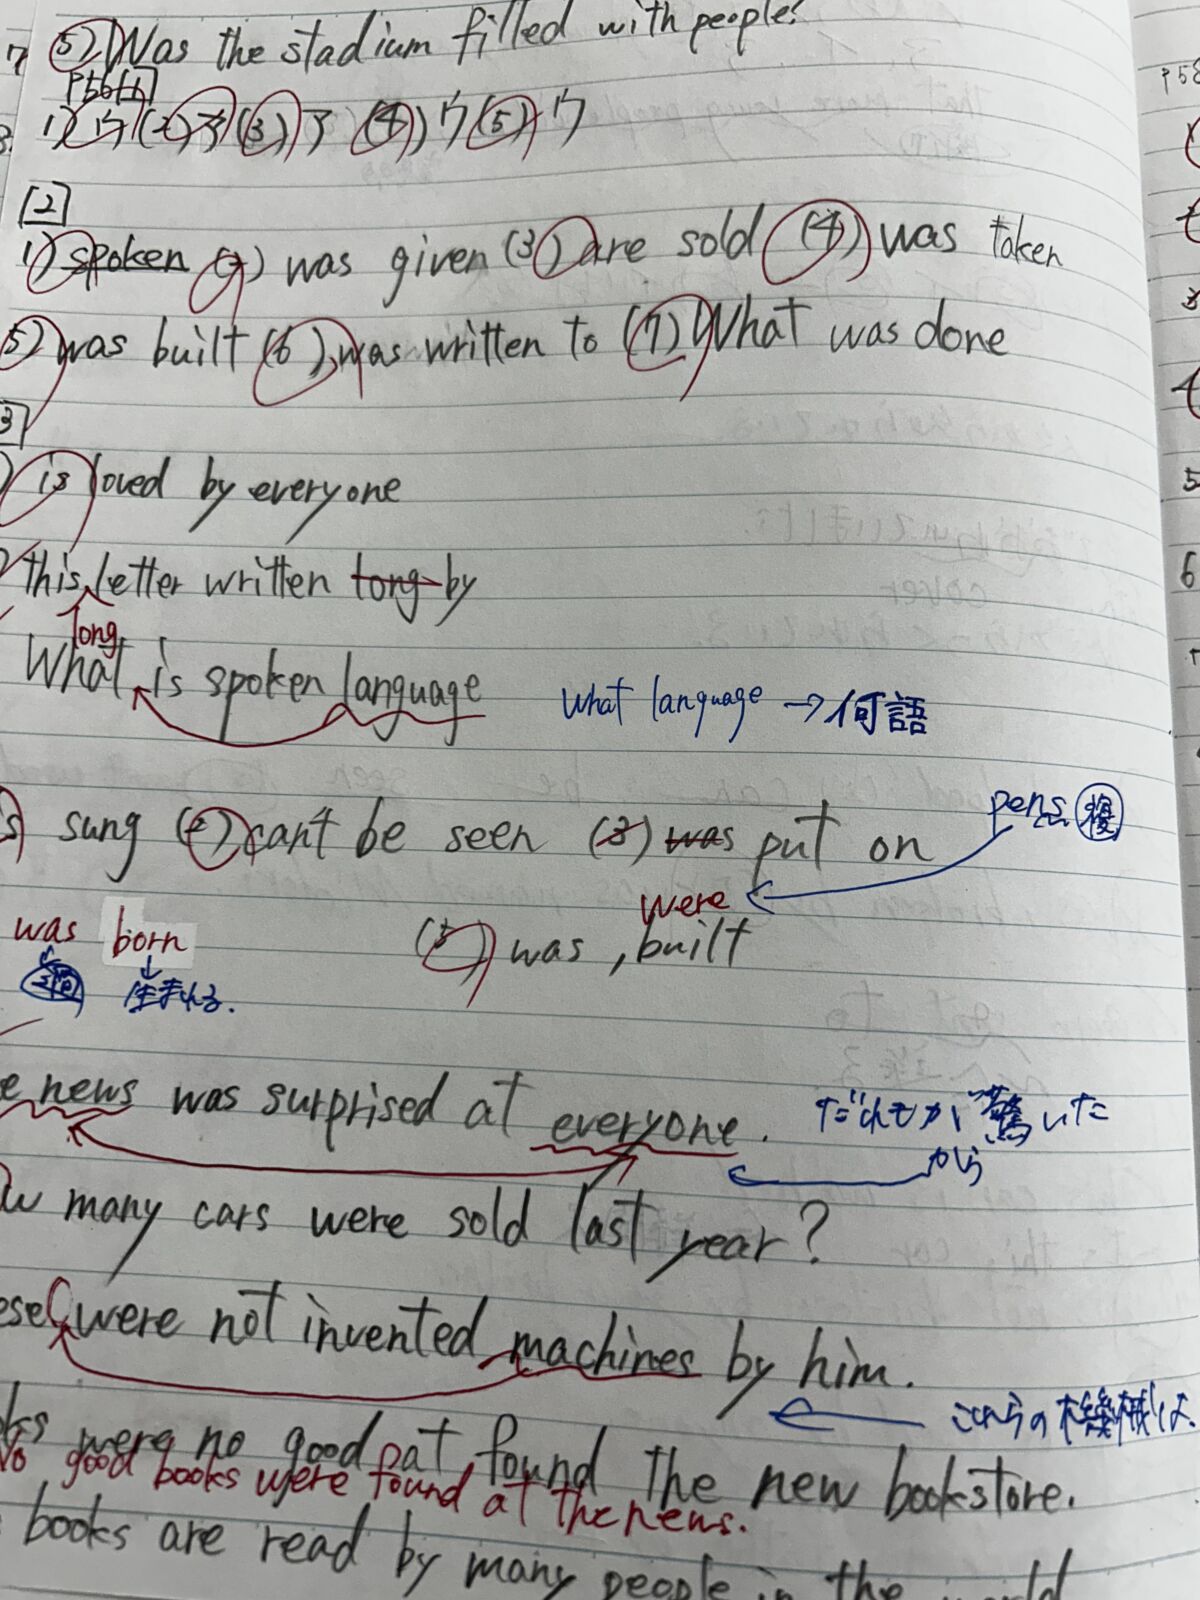 (5) Was the stadium filled with people?
P56 [1]
1) ウ (2) ア (3) ア (4) ウ (5) ウ
[2]
1) spoken (2) was given (3) are sold (4) was taken
5) was built (6) was written to (7) What was done
3
) is loved by everyone
this letter written long by
long
What is spoken language What language → 何語
s sung (2) can't be seen (3) was put on pens 複
were
was born (5) was, built
生まれる.
e news was surprised at everyone. だれもが驚いた
から
w many cars were sold last year?
ese were not invented machines by him.
これらの機械は
ks were no good at found the new bookstore.
No good books were found at the news.
books are read by many people in the world